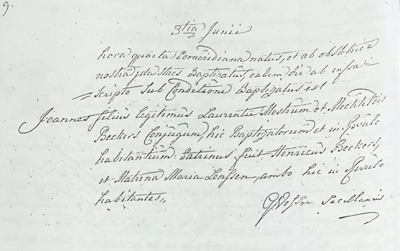 9.
3tia Junii
hora quarta pomeridiana natus, et ab obstetrice
nostra Baptizatus, eadem die ab infra
scripto sub Conditione Baptizatus est
Joannes filius legitimus Laurentii et Mechtildis
Beckers Conjugum, hic Baptizatorum et in
habitantium. Patrinus fuit Henricus Beckers,
et Matrina Maria Lenssen, ambo hic in
habitantes,
Sacellanus